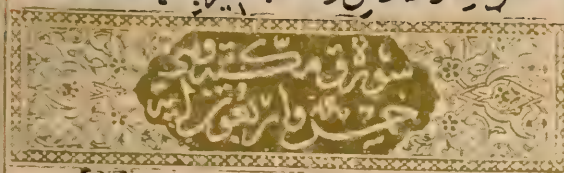 سورة ق مكية وهي
خمس واربعون اية